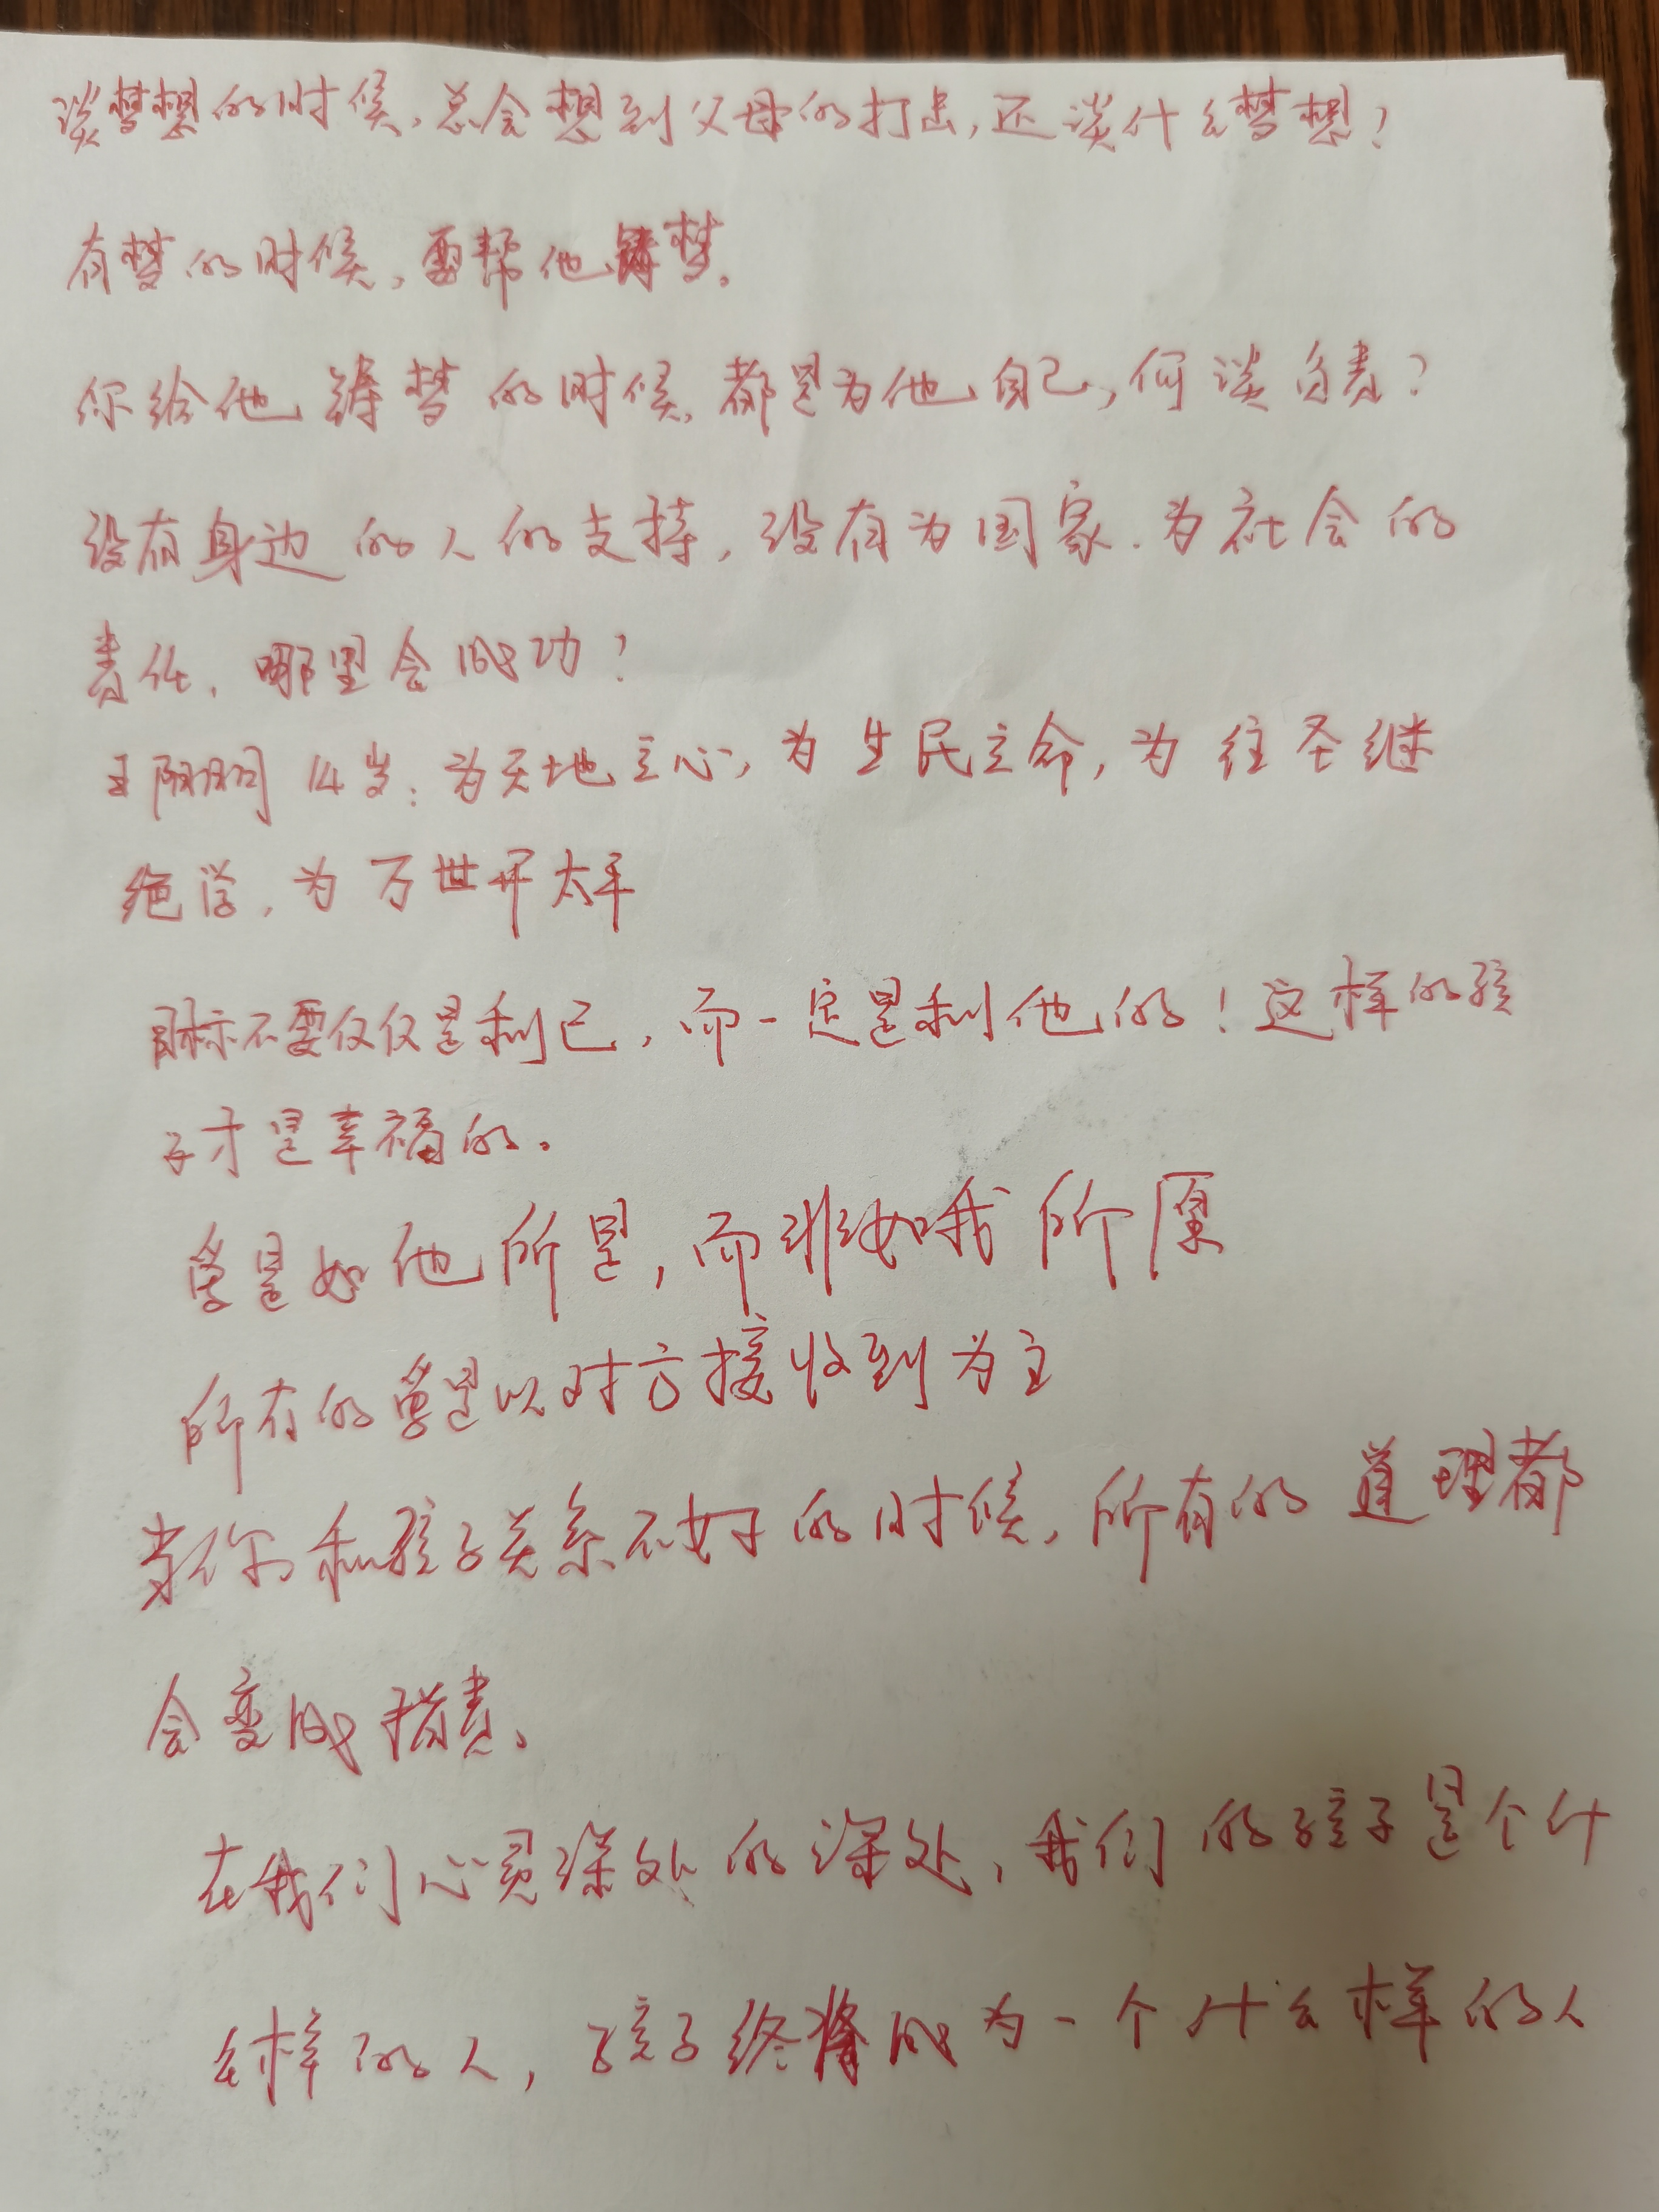 谈梦想的时候,总会想到父母的打击,还谈什么梦想?
有梦的时候,要帮他铸梦。
你给他铸梦的时候,都是为他自己,何谈负责?
没有身边的人的支持,没有为国家.为社会的
责任,哪里会成功?
王阳明14岁:为天地立心,为生民立命,为往圣继
绝学,为万世开太平
目标不要仅仅是利己,而一定是利他的!这样的孩
子才是幸福的。
爱是如他所是,而非如我所愿
所有的爱是以对方接收到为主
当你和孩子关系不好的时候,所有的道理都
会变成指责。
在我们心灵深处的深处,我们的孩子是个什
么样的人,孩子终将成为一个什么样的人